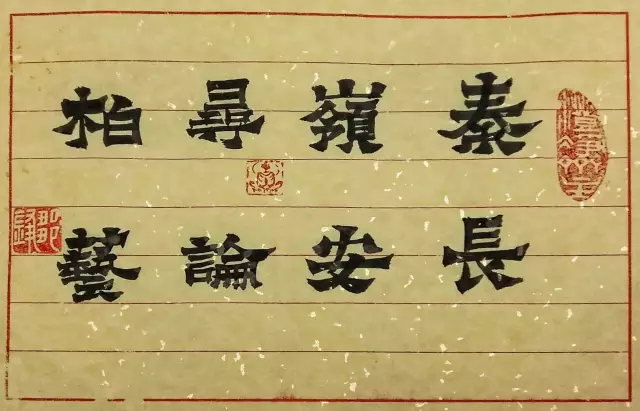 秦嶺尋柏
長安論藝